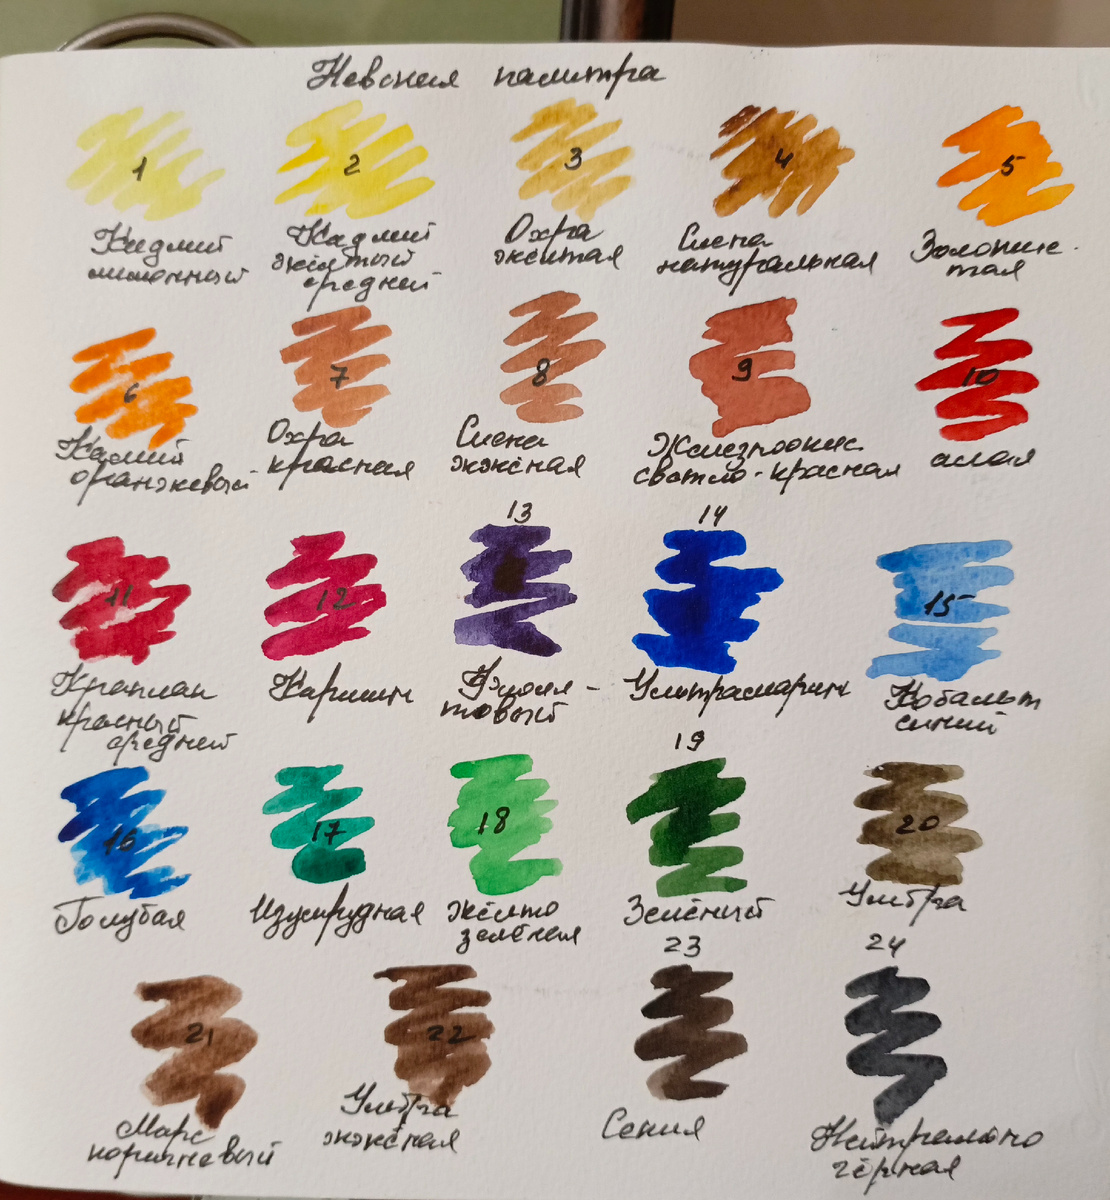 Невская палитра
1
2
3
4
5
Кадмий
лимонный
Кадмий
жёлтый
средний
Охра
жёлтая
Сиена
натуральная
Золотис-
тая
6
7
8
9
10
Кадмий
оранжевый
Охра
красная
Сиена
жжёная
Железноокис.
светло-красная
алая
11
12
13
14
15
Краплак
красный
средний
Кармин
Фиоле-
товый
Ультрамарин
Кобальт
синий
16
17
18
19
20
Голубая
Изумрудная
жёлто
зелёная
Зелёный
Умбра
21
22
23
24
Марс
коричневый
Умбра
жжёная
Сепия
Нейтрально
чёрная